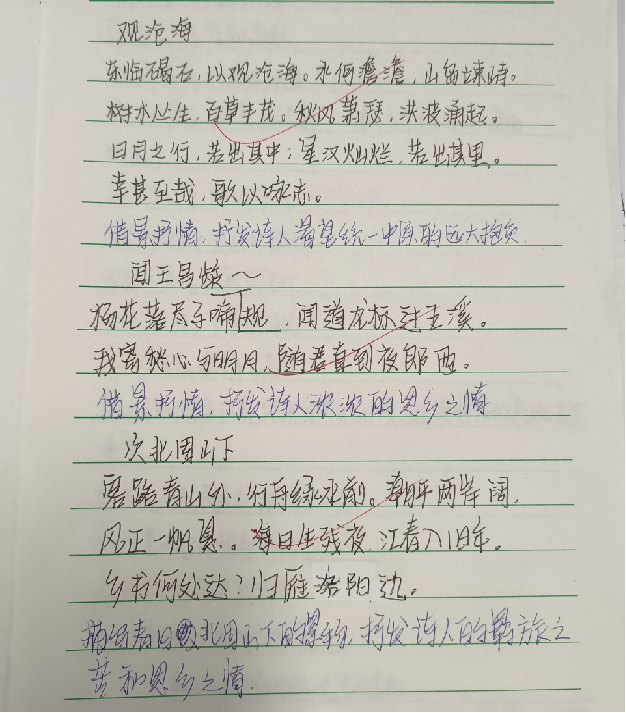 观沧海
东临碣石，以观沧海。水何澹澹，山岛竦峙。
树木丛生，百草丰茂。秋风萧瑟，洪波涌起。
日月之行，若出其中；星汉灿烂，若出其里。
幸甚至哉，歌以咏志。
借景抒情，抒发诗人希望统一中原的远大抱负.
闻王昌龄～
杨花落尽子啼规，闻道龙标过五溪。
我寄愁心与明月，随君直到夜郎西。
借景抒情，抒发诗人浓浓的思乡之情
次北固山下
客路青山外，行舟绿水前。潮平两岸阔，
风正一帆悬。海日生残夜，江春入旧年。
乡书何处达？归雁洛阳边。
描写春日北固山下的景色，抒发诗人的羁旅之
苦和思乡之情.